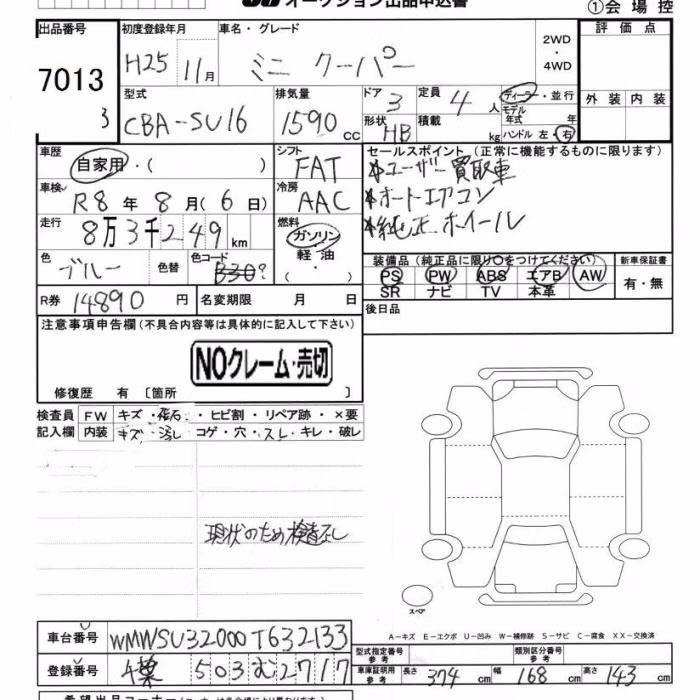 オークション出品申込書
①会場控
出品番号 初度登録年月 車名・グレード 評価点
7013 H25 11月 ミニ クーパー 2WD・4WD
3
型式 排気量 ドア 定員 外装 内装
CBA-SU16 1590cc 3 4人 ディーラー・並行
形状 積載 モデル年式 年
HB kg ハンドル 左・右
車歴 シフト セールスポイント(正常に機能するものに限ります)
自家用・( ) FAT *ユーザー買取車
車検 冷房 *オートエアコン
R8年8月(6日) AAC *純正ホイール
走行 燃料
8万3千249km ガソリン
軽油
( )
色 色替 色コード 装備品(純正品に限り○をつけてください) 新車保証書
ブルー B30? PS PW ABS エアB AW 有・無
SR ナビ TV 本革
R券 14890円 名変期限 月 日 後日品
注意事項申告欄(不具合内容等は具体的に記入して下さい)
NOクレーム・売切
修復歴 有〔箇所 〕
検査員 FW キズ・飛石・ヒビ割・リペア跡・×要
記入欄 内装 キズ・汚れ コゲ・穴・スレ・キレ・破レ
現状のため検査なし
スペア
A-キズ E-エクボ U-凹み W-補修跡 S-サビ C-腐食 XX-交換済
車台番号 WMWSU32000T632133
型式指定番号 参考 類別区分番号 参考
登録番号 千葉 503 む 2717
車庫証明用 参考 長さ 374cm 幅 168cm 高さ 143cm
希望出品コーナー